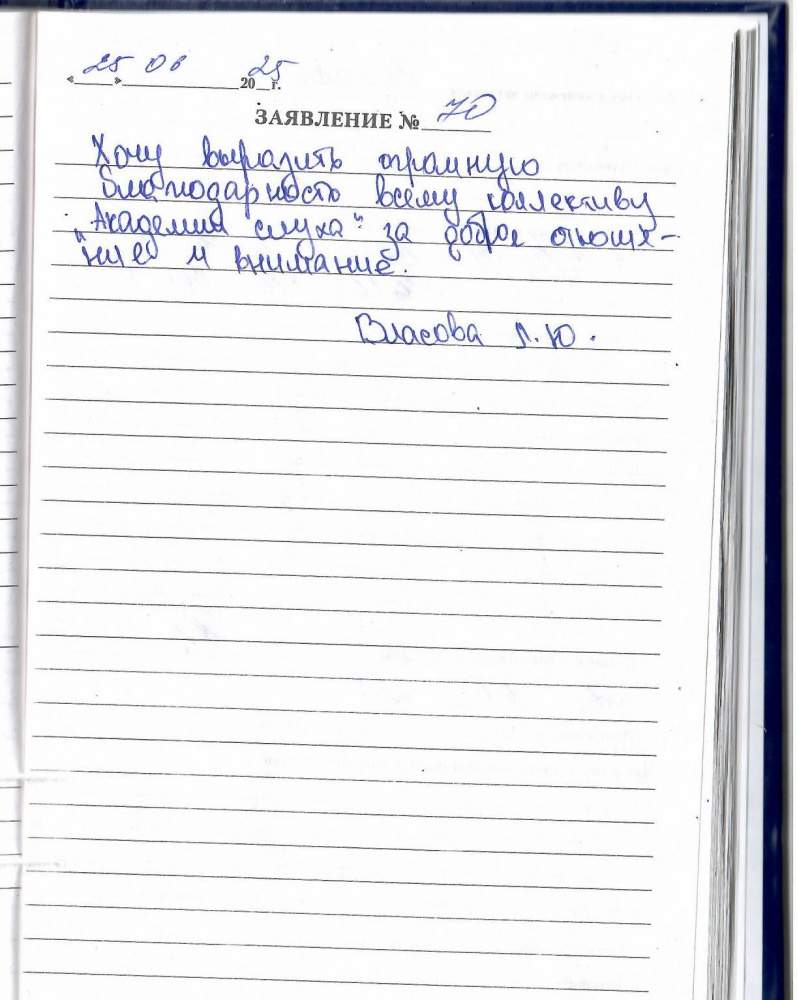 «25» 06 2025г.
ЗАЯВЛЕНИЕ № 70
Хочу выразить огромную
благодарность всему коллективу
"Академия слуха" за доброе отноше-
ние и внимание.
Власова Л.Ю.